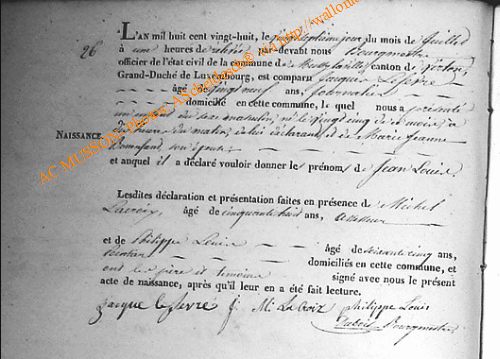 26
NAISSANCE.
L'AN mil huit cent vingt-huit, le vingt septieme jour du mois de Juillet
à une heures de relevée par-devant nous Bourgmestre
officier de l'état civil de la commune de Mussy la ville canton de Virton,
Grand-Duché de Luxembourg, est comparu Jacques Lefevre
âgé de vingt neuf ans, Journalier
domicilié en cette commune, le quel nous a présenté
un enfant du sexe masculin, né le vingt cinq de ce mois, à
heure du matin, de lui déclarant et de Marie Jeanne
son épouse
et auquel il a déclaré vouloir donner les prénoms de Jean Louis
Lesdites déclaration et présentation faites en présence de Michel
Lacroix, âgé de cinquante huit ans,
et de Philippe Louis âgé de soixante cinq ans,
domiciliés en cette commune, et
ont les père et témoins signé avec nous le présent
acte de naissance, après qu'il leur en a été fait lecture.
Jacque lefevre J. M. LaCroix philippe Louis
Bourgmestre
AC MUSSON, Province